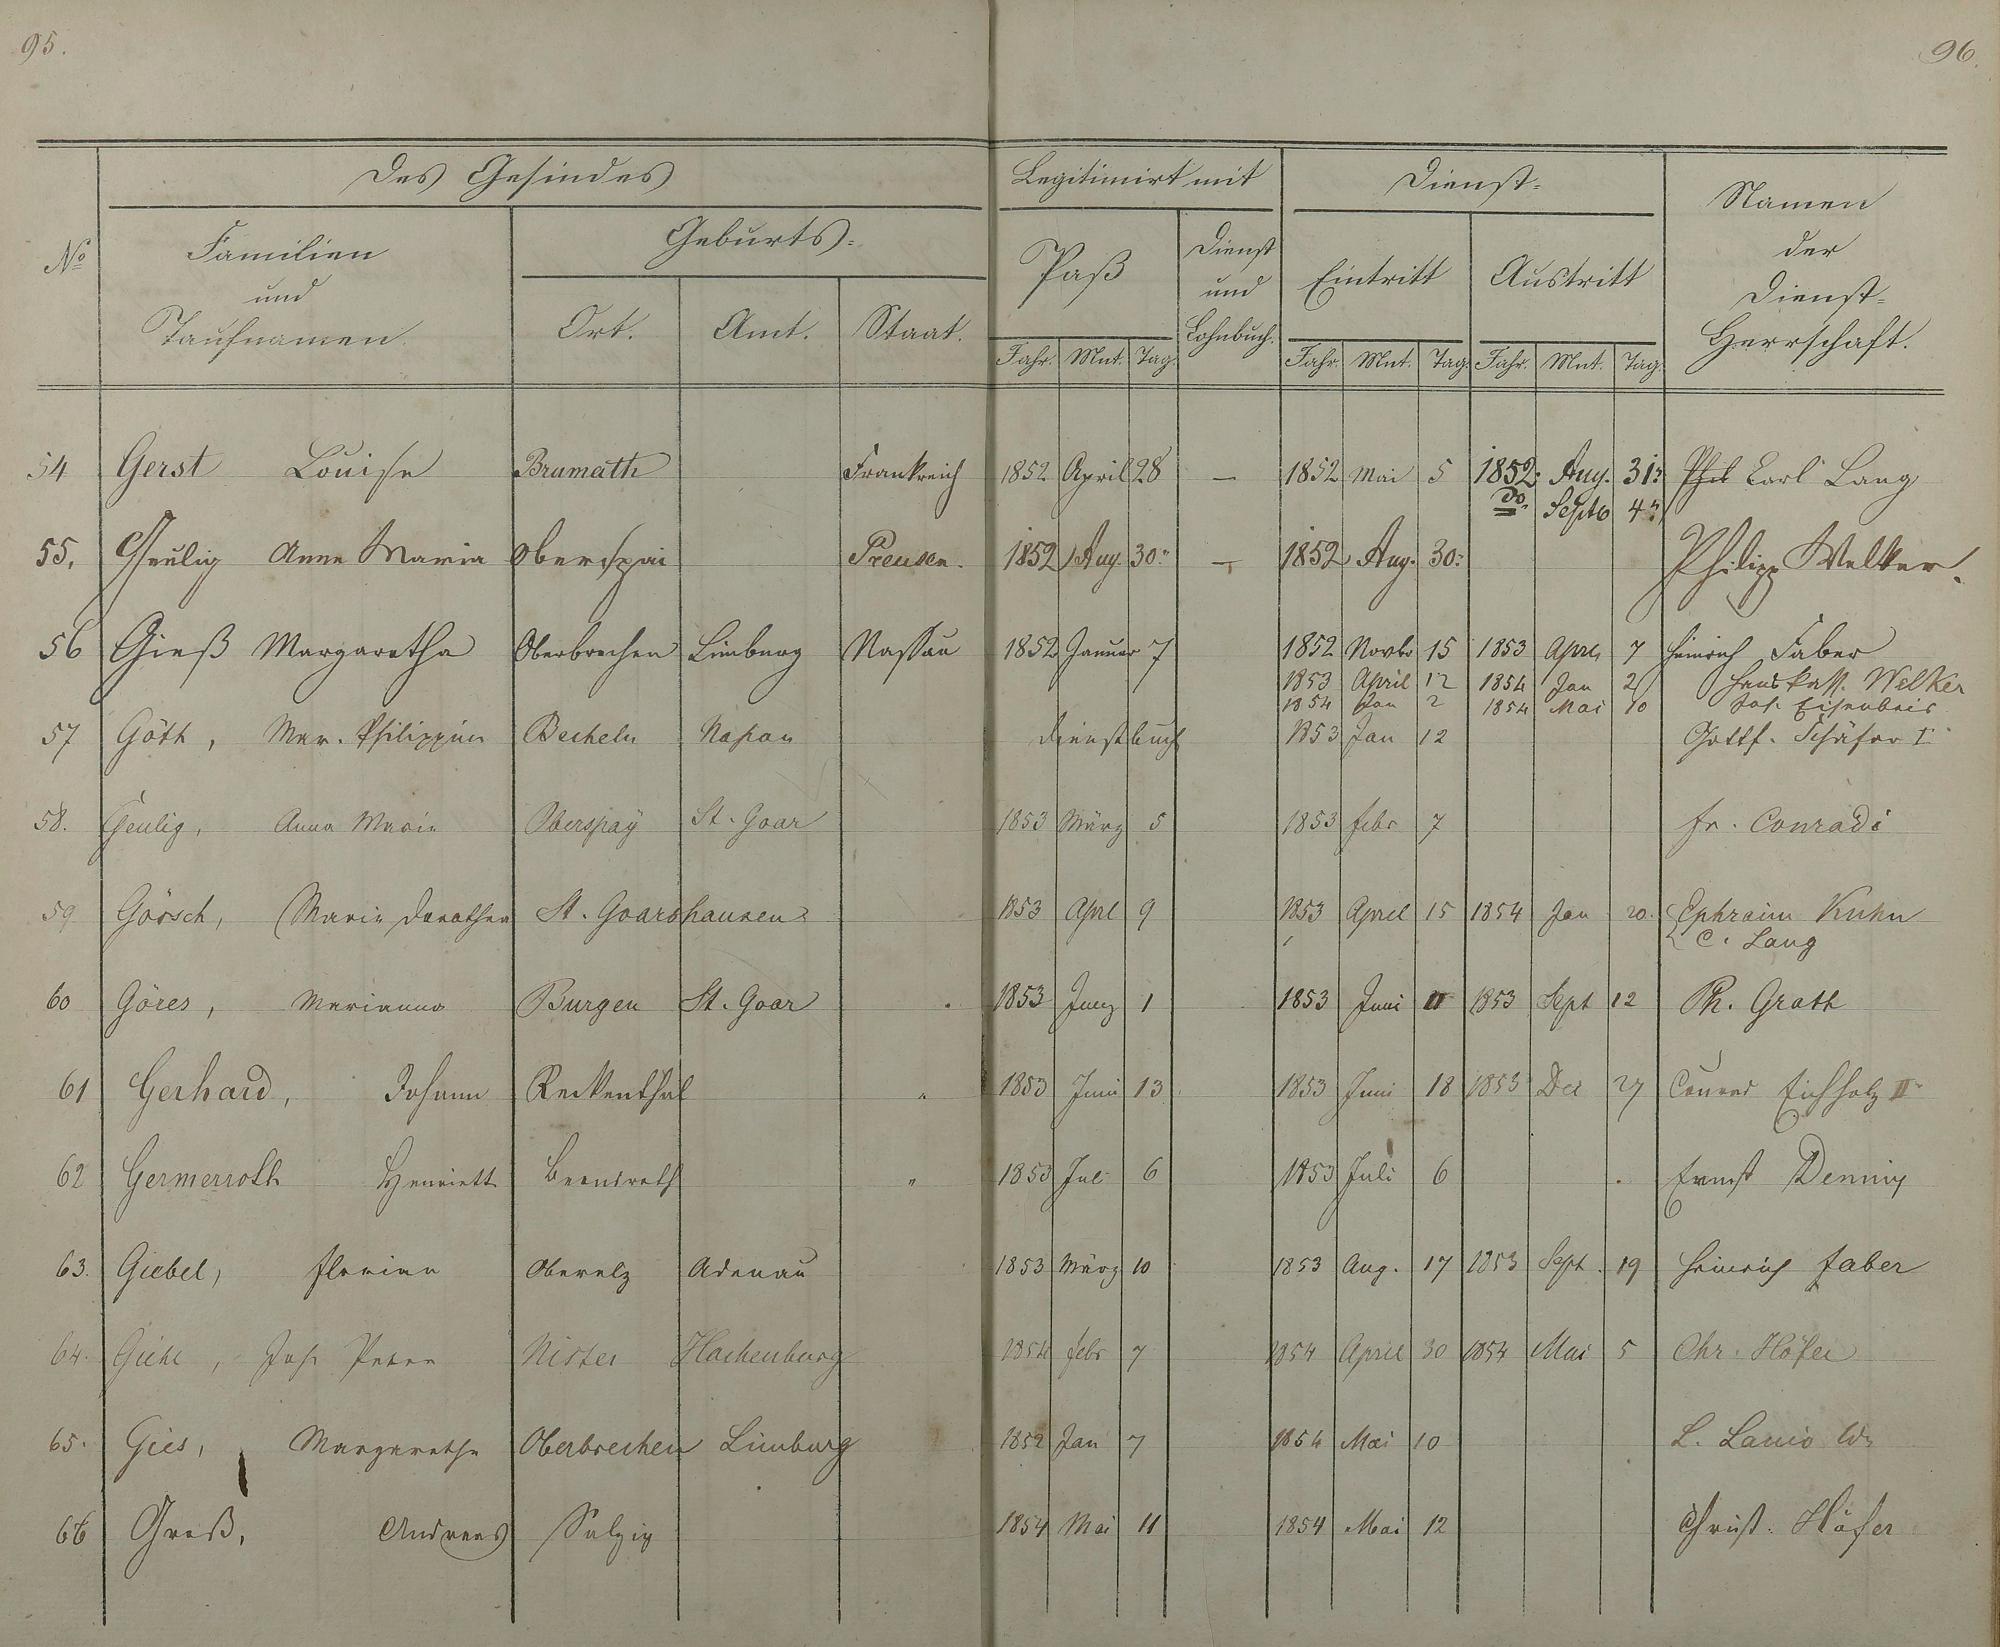 95.
96.
Des Gesindes
Legitimirt mit
Dienst-
Namen der Dienst-Herrschaft.
No
Familien und Taufnamen.
Geburts-
Paß
Dienst und Lohnbuch.
Eintritt
Austritt
Ort.
Amt.
Staat.
Jahr. Mnt. Tag.
Jahr. Mnt. Tag. Jahr. Mnt. Tag.
54 Gerst Louise Brumath Frankreich 1852 April 28 — 1852 Mai 5 1852. Aug. 31. Carl Lang
do. Septb 4.
55. Geulig Anna Maria Oberspai Preusen. 1852 Aug. 30. — 1852 Aug. 30. Philipp Welker.
56 Gieß Margaretha Oberbrechen Limburg Nassau 1852 Januar 7 1852 Novbr 15 1853 Aprl 7 Heinrich Faber
1853 April 12 1854 Jan 2 Welker
1854 Jan 2 1854 Mai 10 Joh. Eisenbeis
57 Göth, Mar. Philippine Becheln Nassau Dienstbuch 1853 Jan 12 Gottf. Schäfer I
58. Geulig, Anna Marie Oberspay St. Goar 1853 März 5 1853 Febr 7 Fr. Conradi
59 Görsch, Marie Dorothea St. Goarshausen 1853 Aprl 9 1853 April 15 1854 Jan 20. Ephraim Kuhn
C. Lang
60 Göres, Marianna Burgen St. Goar 1853 1 1853 Juni 1853 Sept 12 Ph. Groth
61 Gerhard, Johann Reckenthal " 1853 Juni 13 1853 Juni 18 1853 Dec 27 Conrad Eichholz II
62 Germerroth Henriett " 1853 Jul 6 1853 Juli 6 Ernst Denny
63. Giebel, Florian Oberelz Adenau 1853 März 10 1853 Aug. 17 1853 Sept. 19 Heinrich Faber
64. Giehl, Joh Peter Nister Hachenburg 1854 Febr 7 1854 April 30 1854 Mai 5 Chr. Höfer
65. Gies, Margarethe Oberbrechen Limburg 1852 Jan 7 1854 Mai 10 L. Lanio
66 Groß, Andreas Salzig 1854 Mai 11 1854 Mai 12 Christ. Höfer